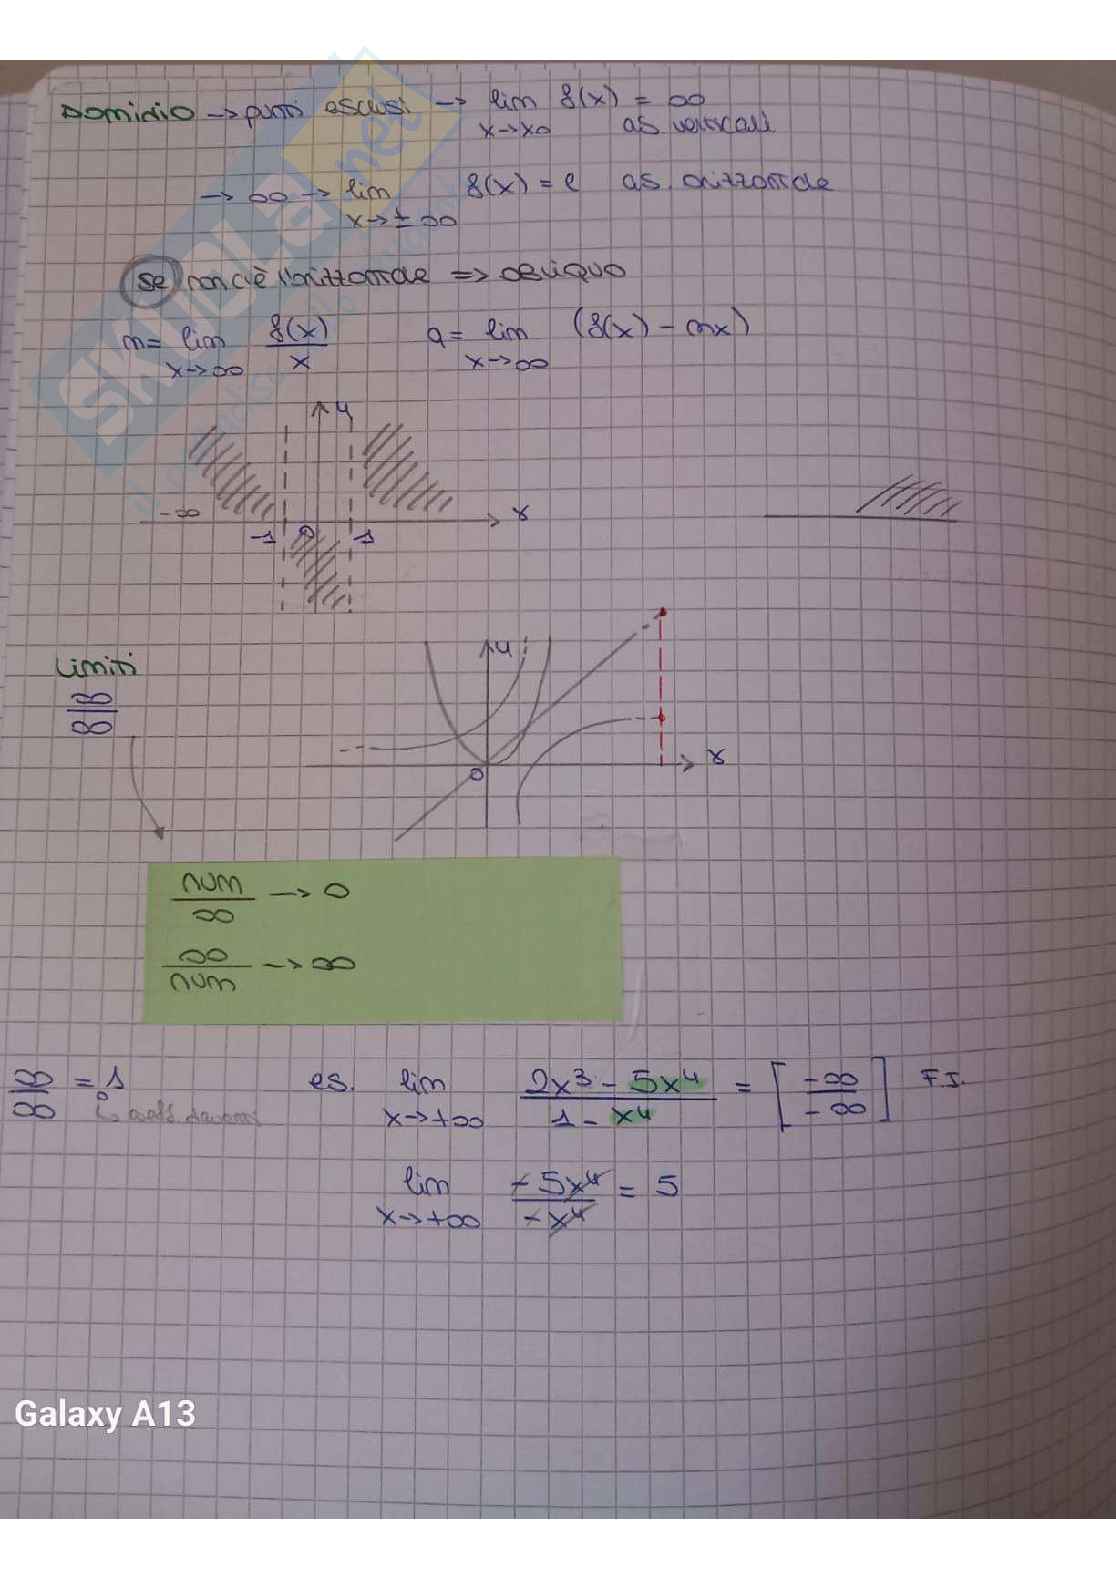 Dominio → punti esclusi → lim f(x) = ∞
x→x0 as verticali
→ ∞ → lim f(x) = l as. orizzontale
x→±∞
Se non c'è l'orizzontale => obliquo
m= lim f(x)/x q= lim (f(x) - mx)
x→∞ x→∞
y
-∞ x
-1 0 1
Limiti
y
∞/∞
x
0
num/∞ → 0
∞/num → ∞
∞/∞ = 1 es. lim (2x³ - 5x⁴)/(1 - x⁴) = [-∞/-∞] F.I.
x→+∞
lim -5x⁴/-x⁴ = 5
x→+∞
SKUOLA.net
Galaxy A13